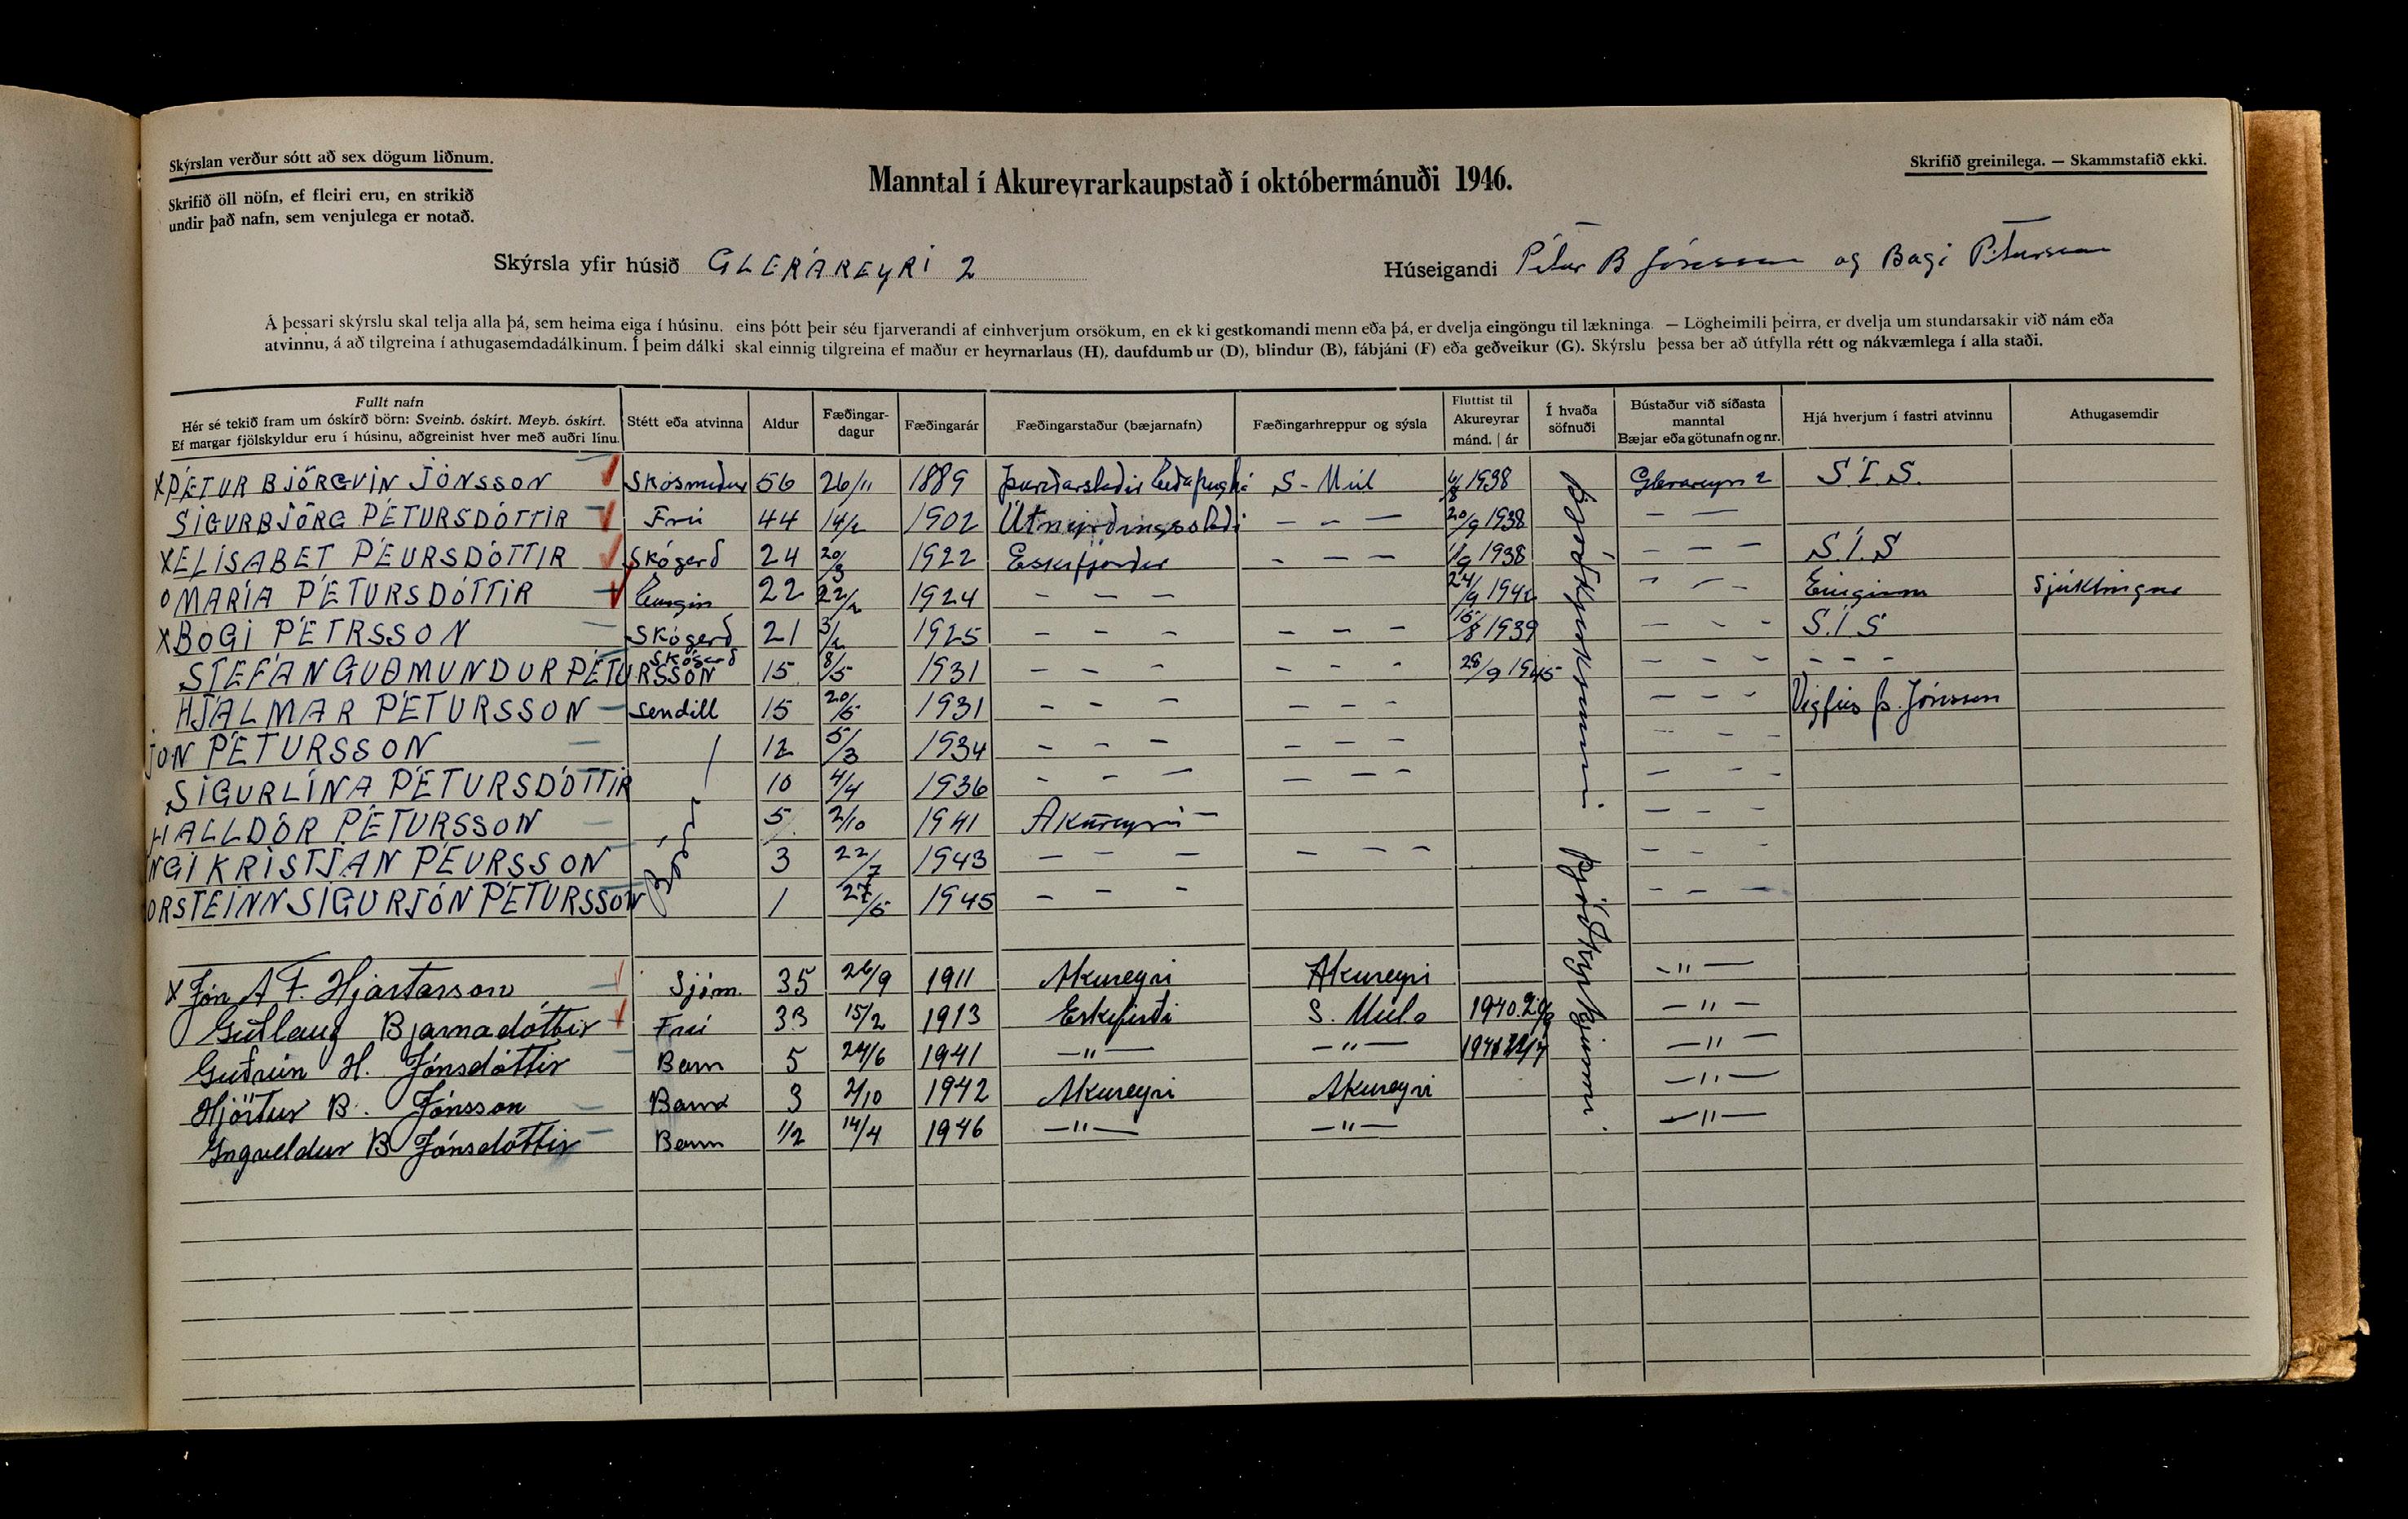 Skýrslan verður sótt að sex dögum liðnum.
Skrifið öll nöfn, ef fleiri eru, en strikið
undir það nafn, sem venjulega er notað.
Manntal í Akureyrarkaupstað í októbermánuði 1946.
Skrifið greinilega. — Skammstafið ekki.
Skýrsla yfir húsið GLERÁREYRI 2
Húseigandi Pétur B Jónsson og Bogi Pétursson
Á þessari skýrslu skal telja alla þá, sem heima eiga í húsinu. eins þótt þeir séu fjarverandi af einhverjum orsökum, en ek ki gestkomandi menn eða þá, er dvelja eingöngu til lækninga. — Lögheimili þeirra, er dvelja um stundarsakir við nám eða
atvinnu, á að tilgreina í athugasemdadálkinum. Í þeim dálki skal einnig tilgreina ef maður er heyrnarlaus (H), daufdumb ur (D), blindur (B), fábjáni (F) eða geðveikur (G). Skýrslu þessa ber að útfylla rétt og nákvæmlega í alla staði.
Fullt nafn
Hér sé tekið fram um óskírð börn: Sveinb. óskírt. Meyb. óskírt.
Ef margar fjölskyldur eru í húsinu, aðgreinist hver með auðri línu.
Stétt eða atvinna
Aldur
Fæðingar-
dagur
Fæðingarár
Fæðingarstaður (bæjarnafn)
Fæðingarhreppur og sýsla
Fluttist til
Akureyrar
mánd. | ár
Í hvaða
söfnuði
Bústaður við síðasta
manntal
Bæjar eða götunafn og nr.
Hjá hverjum í fastri atvinnu
Athugasemdir
X PÉTUR BJÖRGVIN JÓNSSON Skósmiður 56 26/11 1889 S-Múl 1938 Glerareyri 2 S.Í.S.
SIGURBJÖRG PÉTURSDÓTTIR Frú 44 14/2 1902 - - - 20/9 1938 - -
X ELÍSABET PÉURSDÓTTIR Skógerð 24 20/3 1922 Eskifjörður - - - 1/9 1938 - - - S.Í.S
o MARÍA PÉTURSDÓTTIR Eingin 22 22/2 1924 - - - 24/9 1942 - - - Einginn Sjúklingur
X BOGI PÉTRSSON Skógerð 21 3/2 1925 - - - - - - 15/8 1939 - - - S.Í.S
STEFÁN GUÐMUNDUR PÉTURSSON Skógerð 15 8/5 1931 - - - - - - 28/9 1945 - - - - - -
HJÁLMAR PÉTURSSON Sendill 15 20/5 1931 - - - - - - - - - Vigfús Þ. Jónsson
JÓN PÉTURSSON 12 5/3 1934 - - - - - - - - -
SIGURLÍNA PÉTURSDÓTTIR 10 4/4 1936 - - - - - - - - -
HALLDÓR PÉTURSSON 5 2/10 1941 Akureyri - - - -
NGI KRISTJÁN PÉURSSON 3 22/7 1943 - - - - - - - - -
ORSTEINN SIGURJÓN PÉTURSSON 1 27/5 1945 - - - - - -
Börn
Þjóðkyrkjunni.
X Jón A F. Hjartarsson Sjóm. 35 26/9 1911 Akureyri Akureyri -"-
Guðlaug Bjarnadóttir Frú 33 15/2 1913 Eskifirði S. Múla 1940 -"-
Guðrún H. Jónsdóttir Barn 5 24/6 1941 -"- -"- -"-
Hjörtur B. Jónsson Barn 3 2/10 1942 Akureyri Akureyri -"-
Ingveldur B Jónsdóttir Barn 1/2 14/4 1946 -"- -"- -"-
Þjóðkyrkjunni.